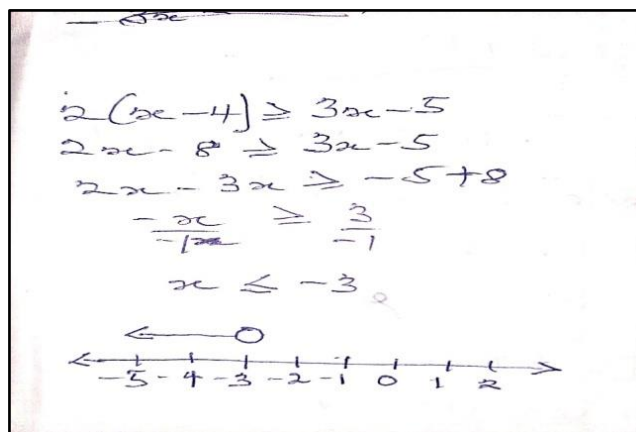 2(x-4) ≥ 3x-5
2x - 8 ≥ 3x-5
2x - 3x ≥ -5+8
-x/-1x ≥ 3/-1
x ≤ -3
-5 -4 -3 -2 -1 0 1 2